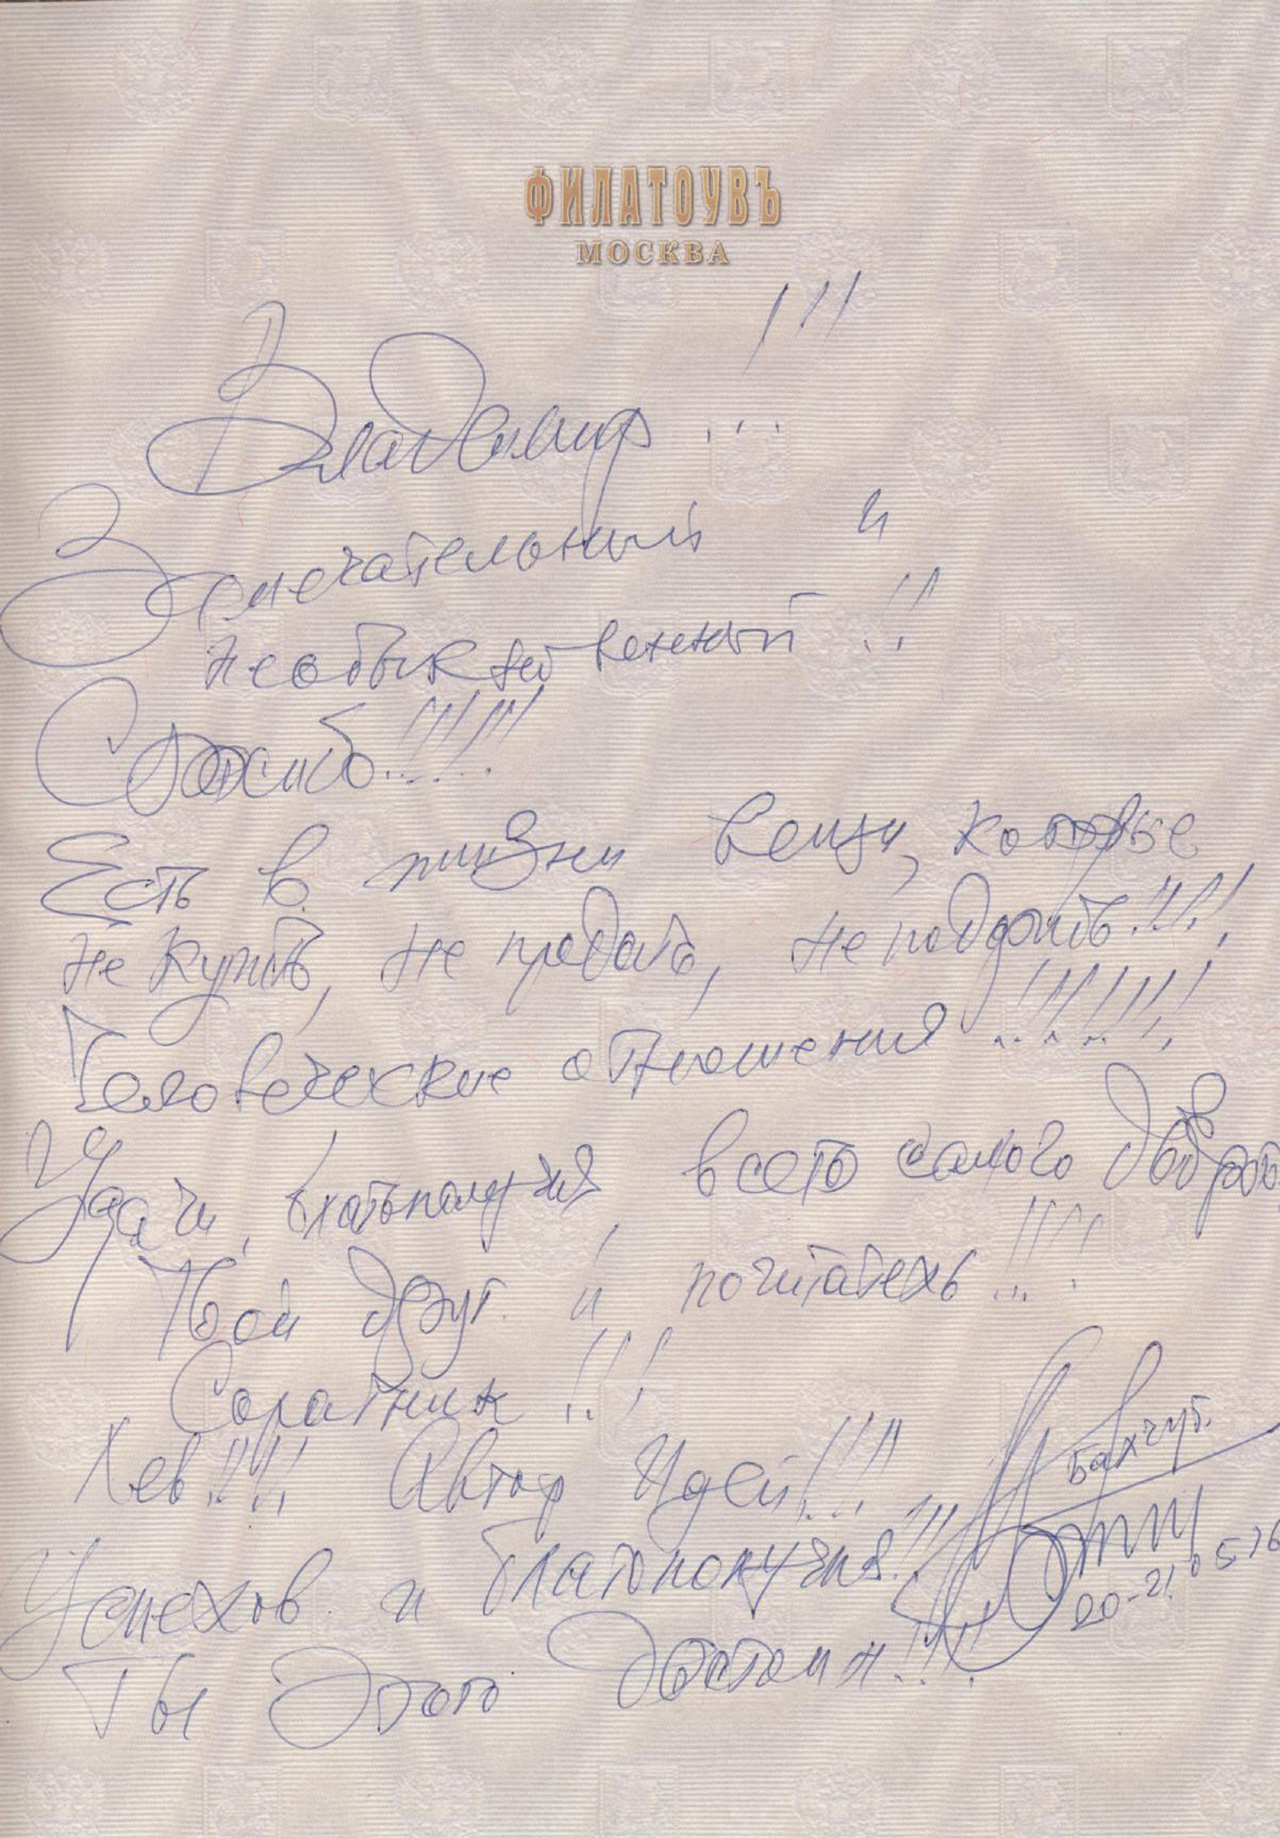 ФИЛАТОУВЪ
МОСКВА
Владимир...!!!
Замечательный и
необыкновенный!!
Спасибо!!!!!!
Есть в жизни вещи, которые
не купить, не продать, не подделать!!!!
Человеческие отношения!!!!!!!
Удачи, благополучия, всего самого доброго
Твой друг и почитатель!!!!
Соратник!!!
Лев!!!! Автор Идей!!!
Успехов и благополучия!!!
Ты Этого Достоин!!!!